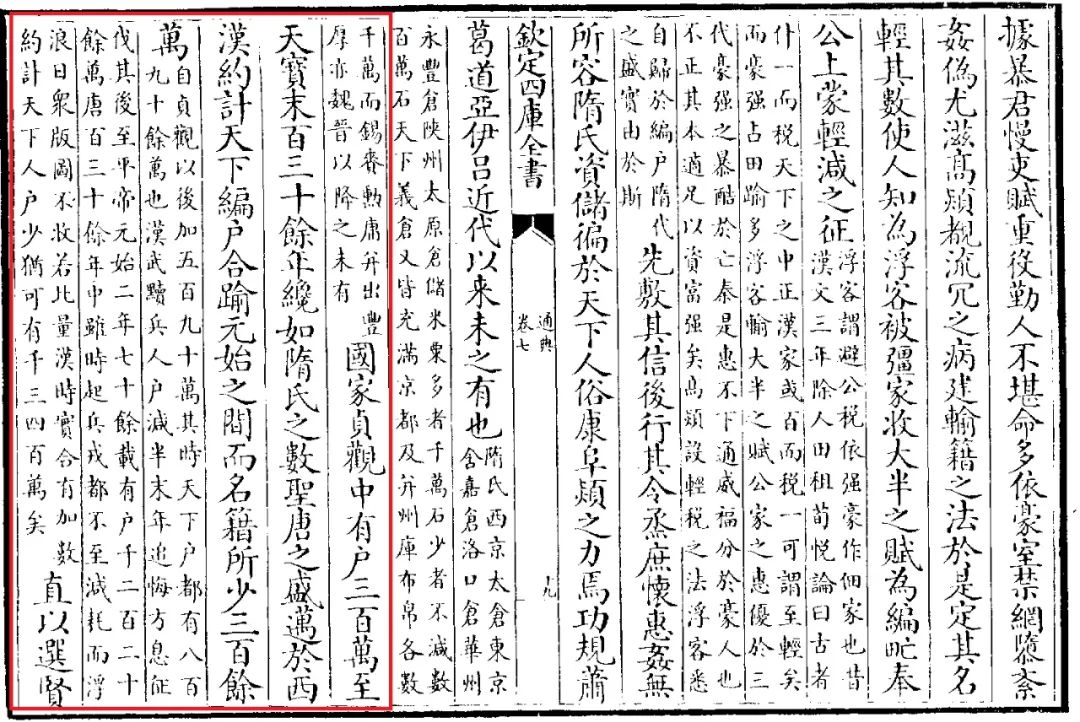 據暴君慢吏賦重役勤人不堪命多依豪室禁網隳紊
姦偽尤滋髙熲覩流冗之病建輸籍之法於是定其名
輕其數使人知為浮客被彊家收大半之賦為編甿奉
公上蒙輕減之征
浮客謂避公税依强豪作佃家也昔
漢文三年除人田租荀悦論曰古者
什一而税天下之中正漢家或百而税一可謂至輕矣
而豪强占田踰多浮客輸大半之賦公家之惠優於三
代豪强之暴酷於亡秦是惠不下通威福分於豪人也
不正其本適足以資富强矣髙熲設輕税之法浮客悉
自歸於編户隋代
之盛實由於斯
先敷其信後行其令烝庶懷惠姦無
所容隋氏資儲徧於天下人俗康阜熲之力焉功規蕭
欽定四庫全書
通典
卷七
九
葛道亞伊吕近代以来未之有也
隋氏西京太倉東京
含嘉倉洛口倉華州
永豐倉陜州太原倉儲米粟多者千萬石少者不減數
百萬石天下義倉又皆充滿京都及并州庫布帛各數
千萬而錫賚勲庸并出豐
厚亦魏晉以降之未有
國家貞觀中有户三百萬至
天寳末百三十餘年纔如隋氏之數聖唐之盛邁於西
漢約計天下編户合踰元始之間而名籍所少三百餘
萬
自貞觀以後加五百九十萬其時天下户都有八百
九十餘萬也漢武黷兵人户減半末年追悔方息征
伐其後至平帝元始二年七十餘載有户千二百二十
餘萬唐百三十餘年中雖時起兵戎都不至減耗而浮
浪日衆版圖不收若比量漢時實合有加數
約計天下人户少猶可有千三四百萬矣
直以選賢